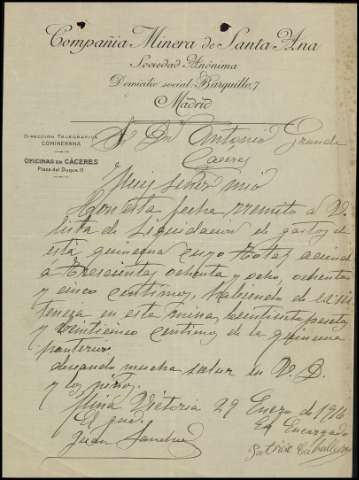 Compañía Minera de Santa Ana
Sociedad Anónima
Domicilio social: Barquillo, 7
Madrid
DIRECCIÓN TELEGRÁFICA
OFICINAS EN CÁCERES
S. Dn Antonio Grande
Caceres
Muy señor mio
Con esta fecha remito a V.
lista de liquidacion de gastos de
esta quincena cuyo total asciende
a trescientas ochenta y ocho, ochenta
y cinco centimos, habiendo de
en esta mina, pesetas
y veinticinco centimos de la quincena
anterior
deseando mucha salud en V. D.
y los niños.
Mina Victoria 29 Enero de 1914
El Encargado
Juan Sanchez